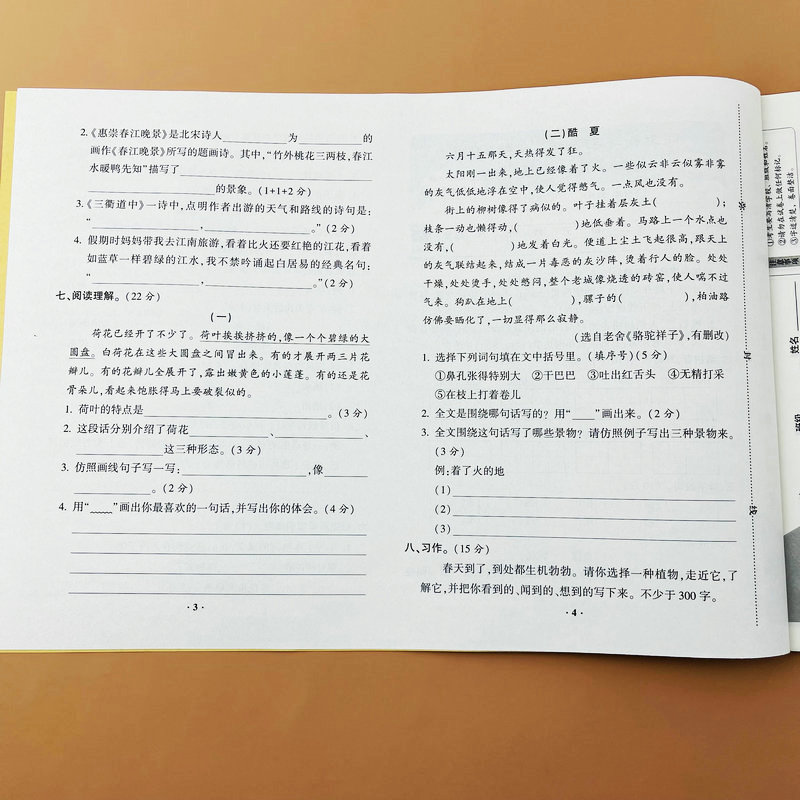 2.《惠崇春江晚景》是北宋诗人____________为____________的
画作《春江晚景》所写的题画诗。其中,“竹外桃花三两枝,春江
水暖鸭先知”描写了____________
____________的景象。(1+1+2分)
3.《三衢道中》一诗中,点明作者出游的天气和路线的诗句是:
“____________,____________。”(2分)
4. 假期时妈妈带我去江南旅游,看着比火还要红艳的江花,看着
如蓝草一样碧绿的江水,我不禁吟诵起白居易的经典名句:
“____________,____________。”(2分)
七、阅读理解。(22分)
(一)
荷花已经开了不少了。荷叶挨挨挤挤的,像一个个碧绿的大
圆盘。白荷花在这些大圆盘之间冒出来。有的才展开两三片花
瓣儿。有的花瓣儿全展开了,露出嫩黄色的小莲蓬。有的还是花
骨朵儿,看起来饱胀得马上要破裂似的。
1. 荷叶的特点是____________。(3分)
2. 这段话分别介绍了荷花____________、____________、
____________这三种形态。(3分)
3. 仿照画线句子写一写:____________,像____________
____________。(2分)
4. 用“﹏﹏”画出你最喜欢的一句话,并写出你的体会。(4分)
· 3 ·
(二)酷 夏
六月十五那天,天热得发了狂。
太阳刚一出来,地上已经像着了火。一些似云非云似雾非雾
的灰气低低地浮在空中,使人觉得憋气。一点风也没有。
街上的柳树像得了病似的。叶子挂着层灰土( )
枝条一动也懒得动,( )地低垂着。马路上一个水点也
没有,( )地发着白光。便道上尘土飞起很高,跟天上
的灰气联结起来,结成一片毒恶的灰沙阵,烫着行人的脸。处处
干燥,处处烫手,处处憋闷,整个老城像烧透的砖窑,使人喘不过
气来。狗趴在地上( ),骡子的( ),柏油路
仿佛要晒化了,一切显得那么寂静。
(选自老舍《骆驼祥子》,有删改)
1. 选择下列词句填在文中括号里。(填序号)(5分)
①鼻孔张得特别大 ②干巴巴 ③吐出红舌头 ④无精打采
⑤在枝上打着卷儿
2. 全文是围绕哪句话写的?用“____”画出来。(2分)
3. 全文围绕这句话写了哪些景物?请仿照例子写出三种景物来。
(3分)
例:着了火的地
(1)____________
(2)____________
(3)____________
八、习作。(15分)
春天到了,到处都生机勃勃。请你选择一种植物,走近它,了
解它,并把你看到的、闻到的、想到的写下来。不少于300字。
· 4 ·
密
封
线
注意事项
姓名